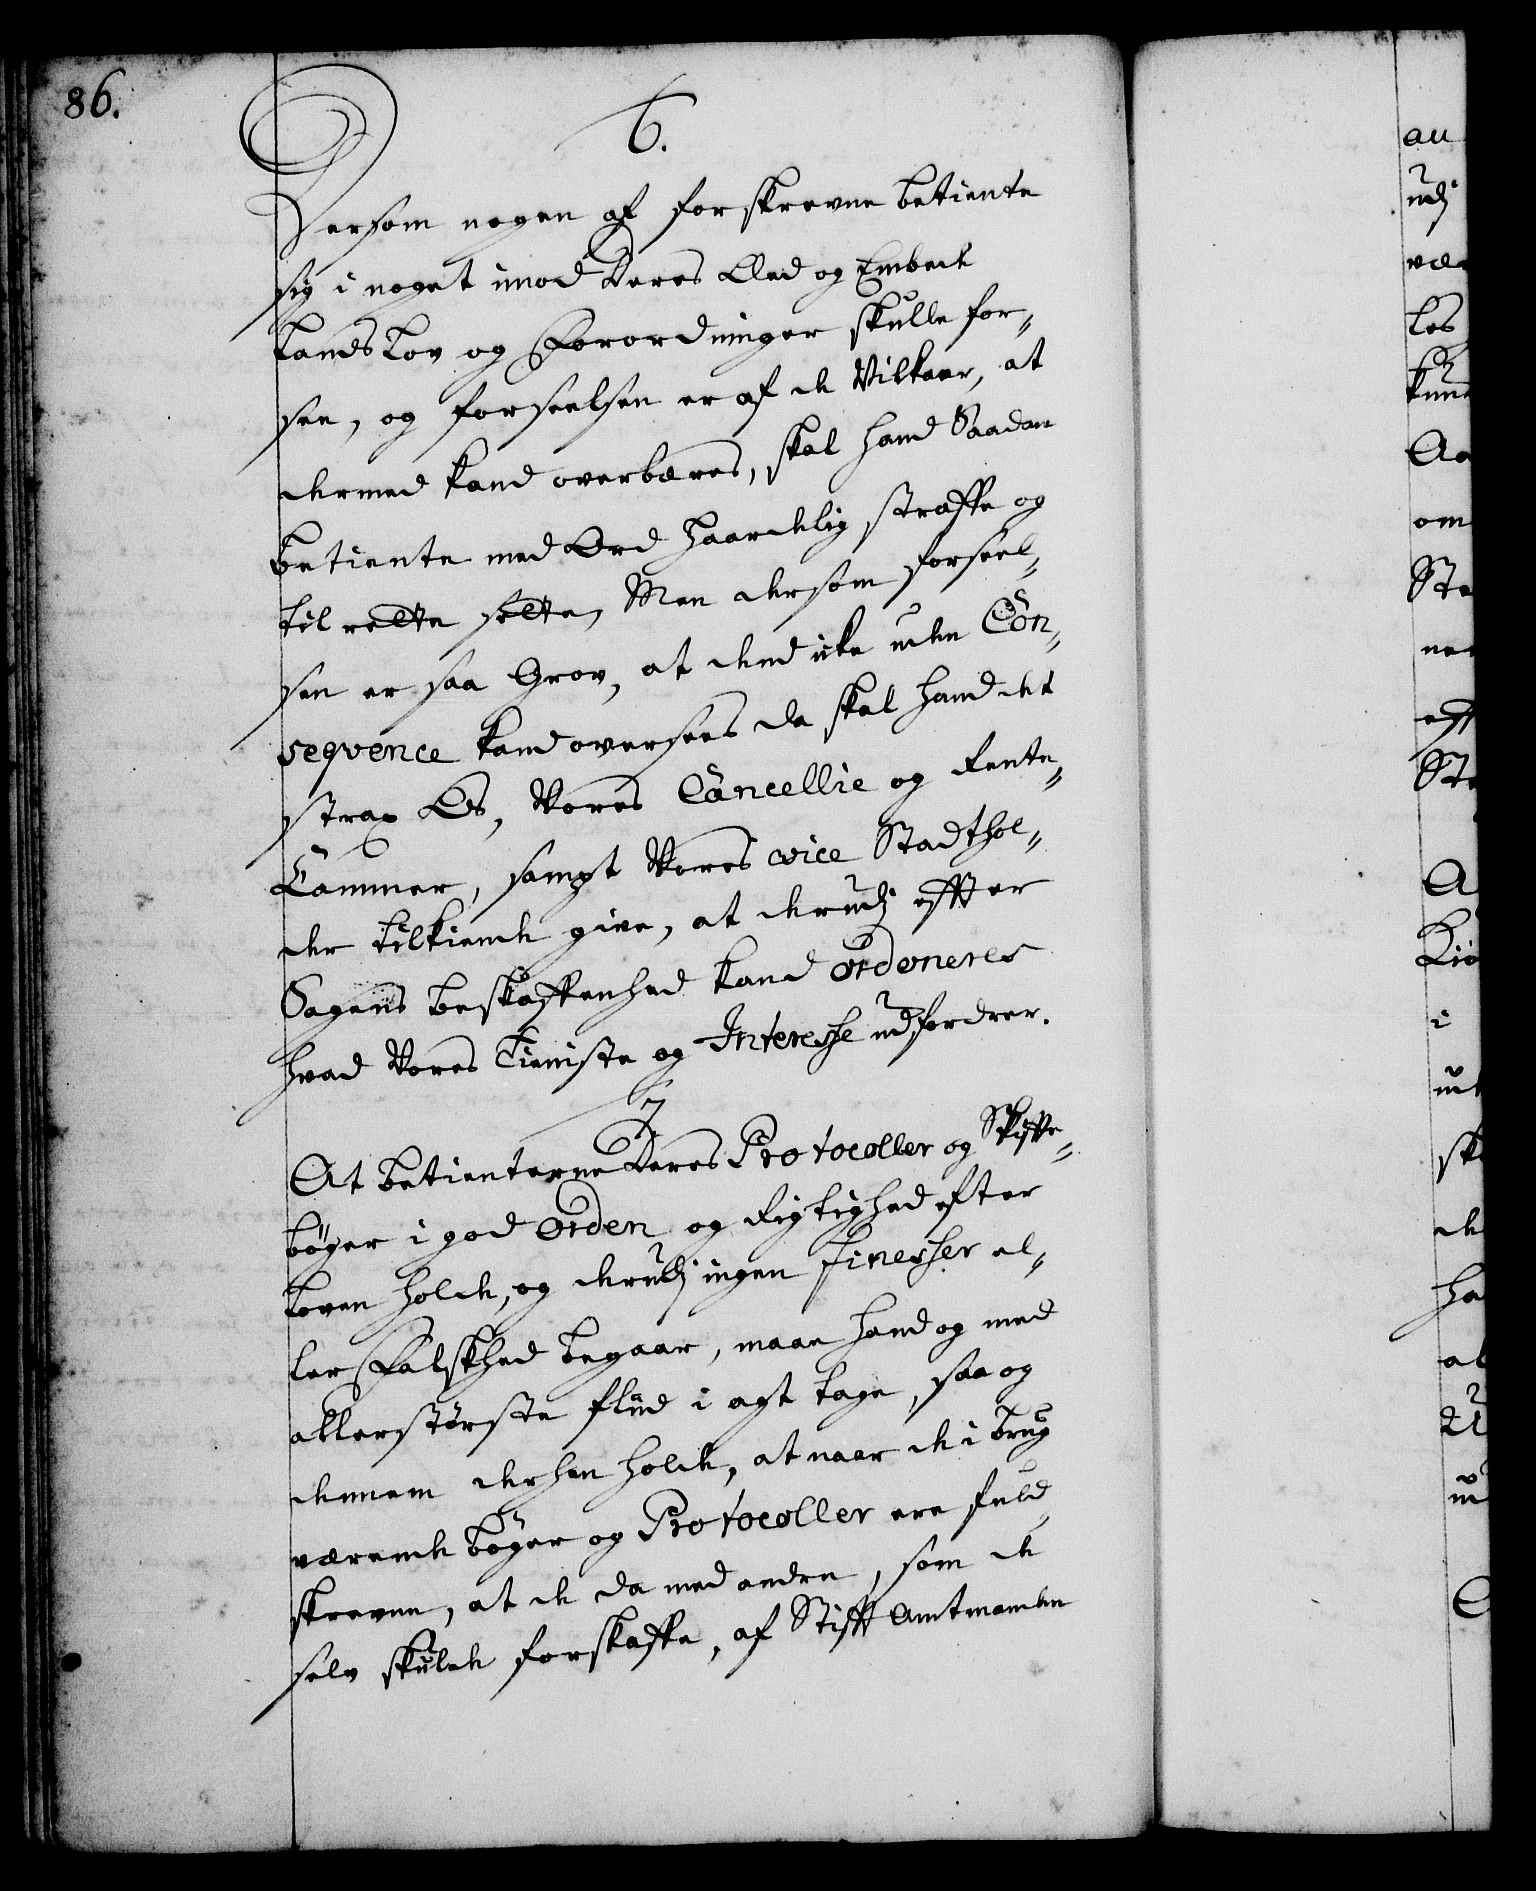 86.
6.
Dersom nogen af forskrevne betiente
sig i noget imod deres Eed og Embede
Lands Lov og Forordninger skulle for„
see, og forseelsen er af de Vilkaar, at
dermed kand overbæres, skal hand Saadan
betiente med Ord haardelig straffe og
til rette sette, Men dersom forseel„
sen er saa Grov, at dend icke uden Con„
seqvence kand oversees da skal hand det
strax Os, Vores Cancellie og Rente„
Cammer, sampt Vores vice Stadthol„
der tilkiende give, at derudj effter
Sagens beskaffenhed kand ordoneres
hvad Vores Tieniste og Interesse udfordrer.
7.
At betienterne deres Protocoller og Skifte„
bøger i god Orden og Rigtighed efter
Loven holde, og derudj ingen finesser el„
ler Falskhed begaar, maae hand og med
allerstørste fliid i agt tage, saa og
dennem derhen holde, at naar de i brug
værende bøger og Protocoller ere fuld„
skrevne, at de da med andre, som de
selv skulde forskaffe, af Stifft Amtmanden
au
udj
væ
les
kun
Aa
om
Sta
ne
eff
Ste
A
Liø
i
ud
sk
de
ha
al